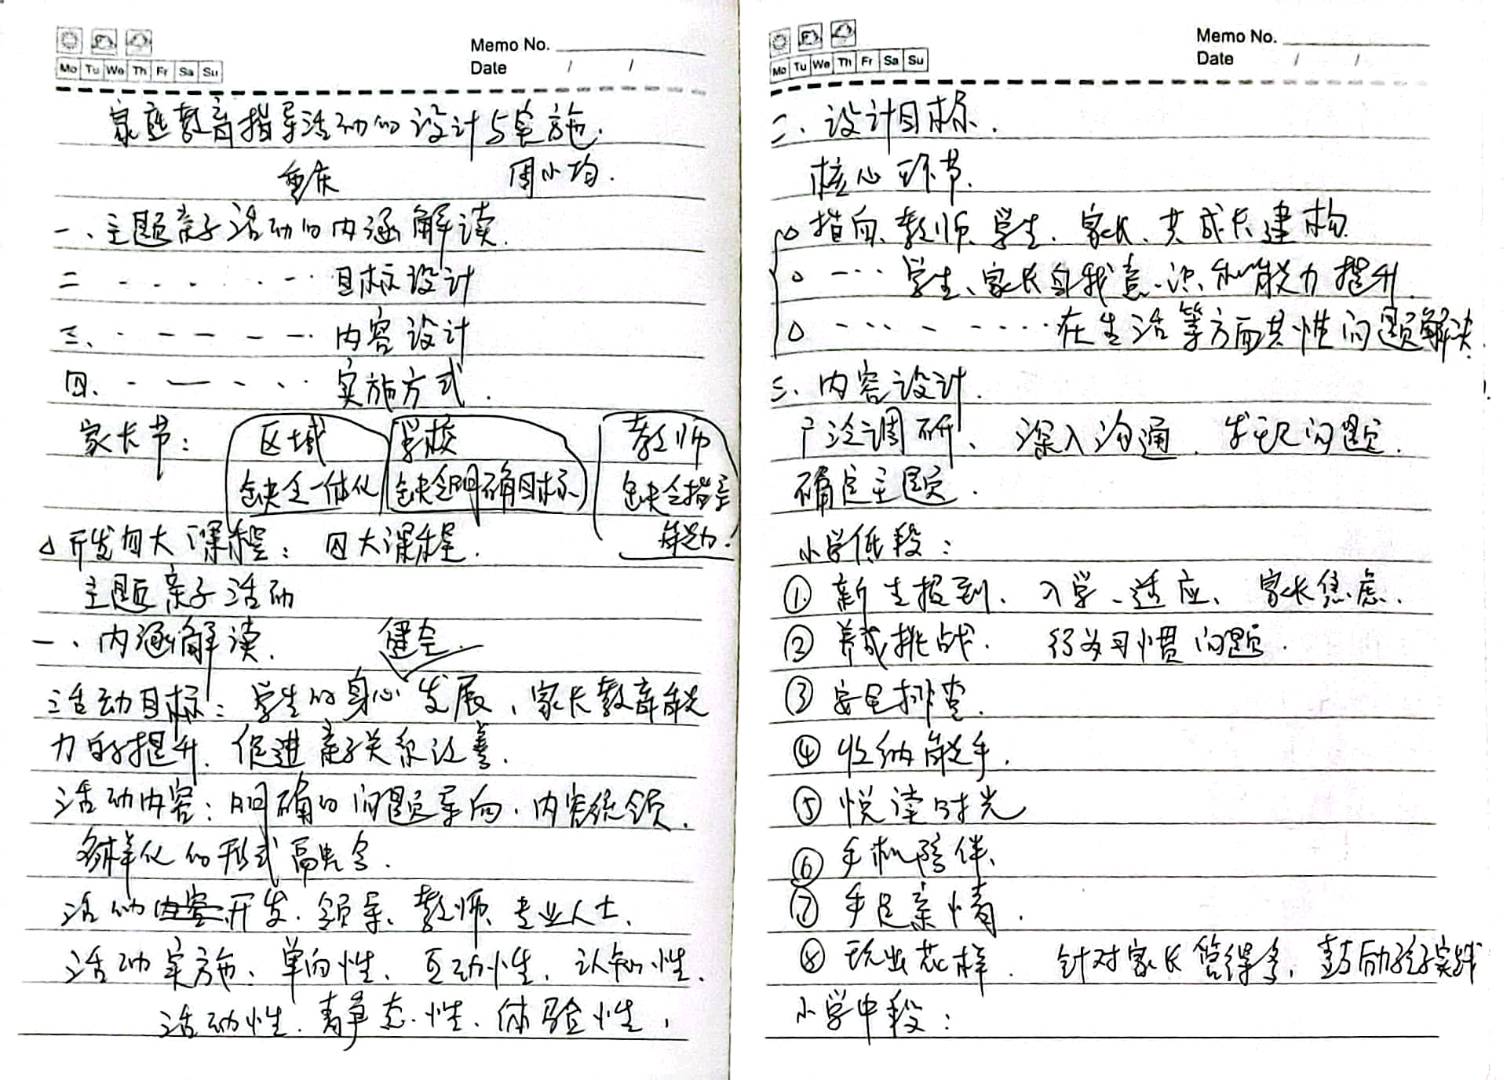 Memo No.
Mo Tu We Th Fr Sa Su
Date / /
家庭教育指导活动的设计与实施.
重庆 周小均.
一、主题亲子活动的内涵解读.
二 ······ 目标设计
三、····· 内容设计
四、····· 实施方式.
家长节: 区域 学校 教师
缺乏一体化 缺乏明确目标 缺乏指导
能力!
△开发四大课程: 四大课程.
主题亲子活动
一、内涵解读. 健全.
活动目标: 学生的身心发展、家长教育能
力的提升. 促进亲子关系改善.
活动内容: 明确的问题导向. 内容统领.
多样化的形式
活动开发. 领导、教师、专业人士.
活动实施、单向性、互动性、认知性.
活动性、静态性、体验性,
Memo No.
Mo Tu We Th Fr Sa Su
Date / /
二、设计目标.
核心环节.
○指向、教师、学生、家长、共成长建构.
○ ···· 学生、家长自我意识和能力提升.
○ ········在生活等方面共性问题解决.
三、内容设计.
广泛调研、深入沟通. 发现问题.
确定主题.
小学低段:
① 新生报到、入学、适应、家长焦虑.
② 养成挑战. 行为习惯问题.
③ 安全排查.
④ 收纳能手.
⑤ 悦读时光
⑥ 手机陪伴、
⑦ 手足亲情.
⑧ 玩出花样. 针对家长管得多, 鼓励孩子实践
小学中段: